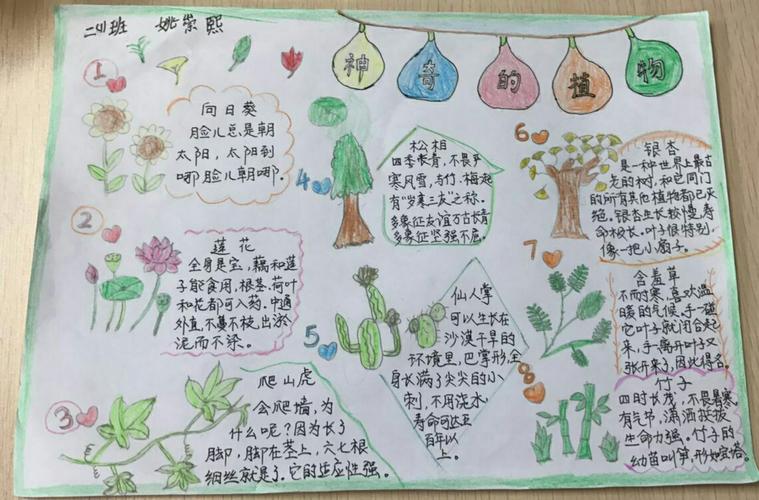 二(4)班 姚崇熙
神奇的植物
1
向日葵
脸儿总是朝
太阳，太阳到
哪脸儿朝哪。
2
莲花
全身是宝，藕和莲
子能食用，根茎、荷叶
和花都可入药。中通
外直，不蔓不枝，出淤
泥而不染。
3
爬山虎
会爬墙，为
什么呢？因为长了
脚，脚在茎上，六七根
细丝就是了。它的适应性强。
4
松柏
四季常青，不畏严
寒风雪，与竹、梅起
有“岁寒三友”之称。
多象征友谊万古长青
多象征坚强不屈。
5
仙人掌
可以生长在
沙漠干旱的
环境里，巴掌形，全
身长满了尖尖的小
刺，不用浇水
寿命可达五
百年以
上。
6
银杏
是一种世界上最古
老的树，和它同门
的所有其他植物都已灭
绝。银杏生长较慢，寿
命极长。叶子很特别，
像一把小扇子。
7
含羞草
不耐寒，喜欢温
暖的气候，手一碰
它叶子就闭合起
来，手离开叶子又
张开来了，因此得名。
8
竹子
四时长茂，不畏暑寒，
有气节，潇洒挺拔
生命力强。竹子的
幼苗叫笋，形如宝塔。